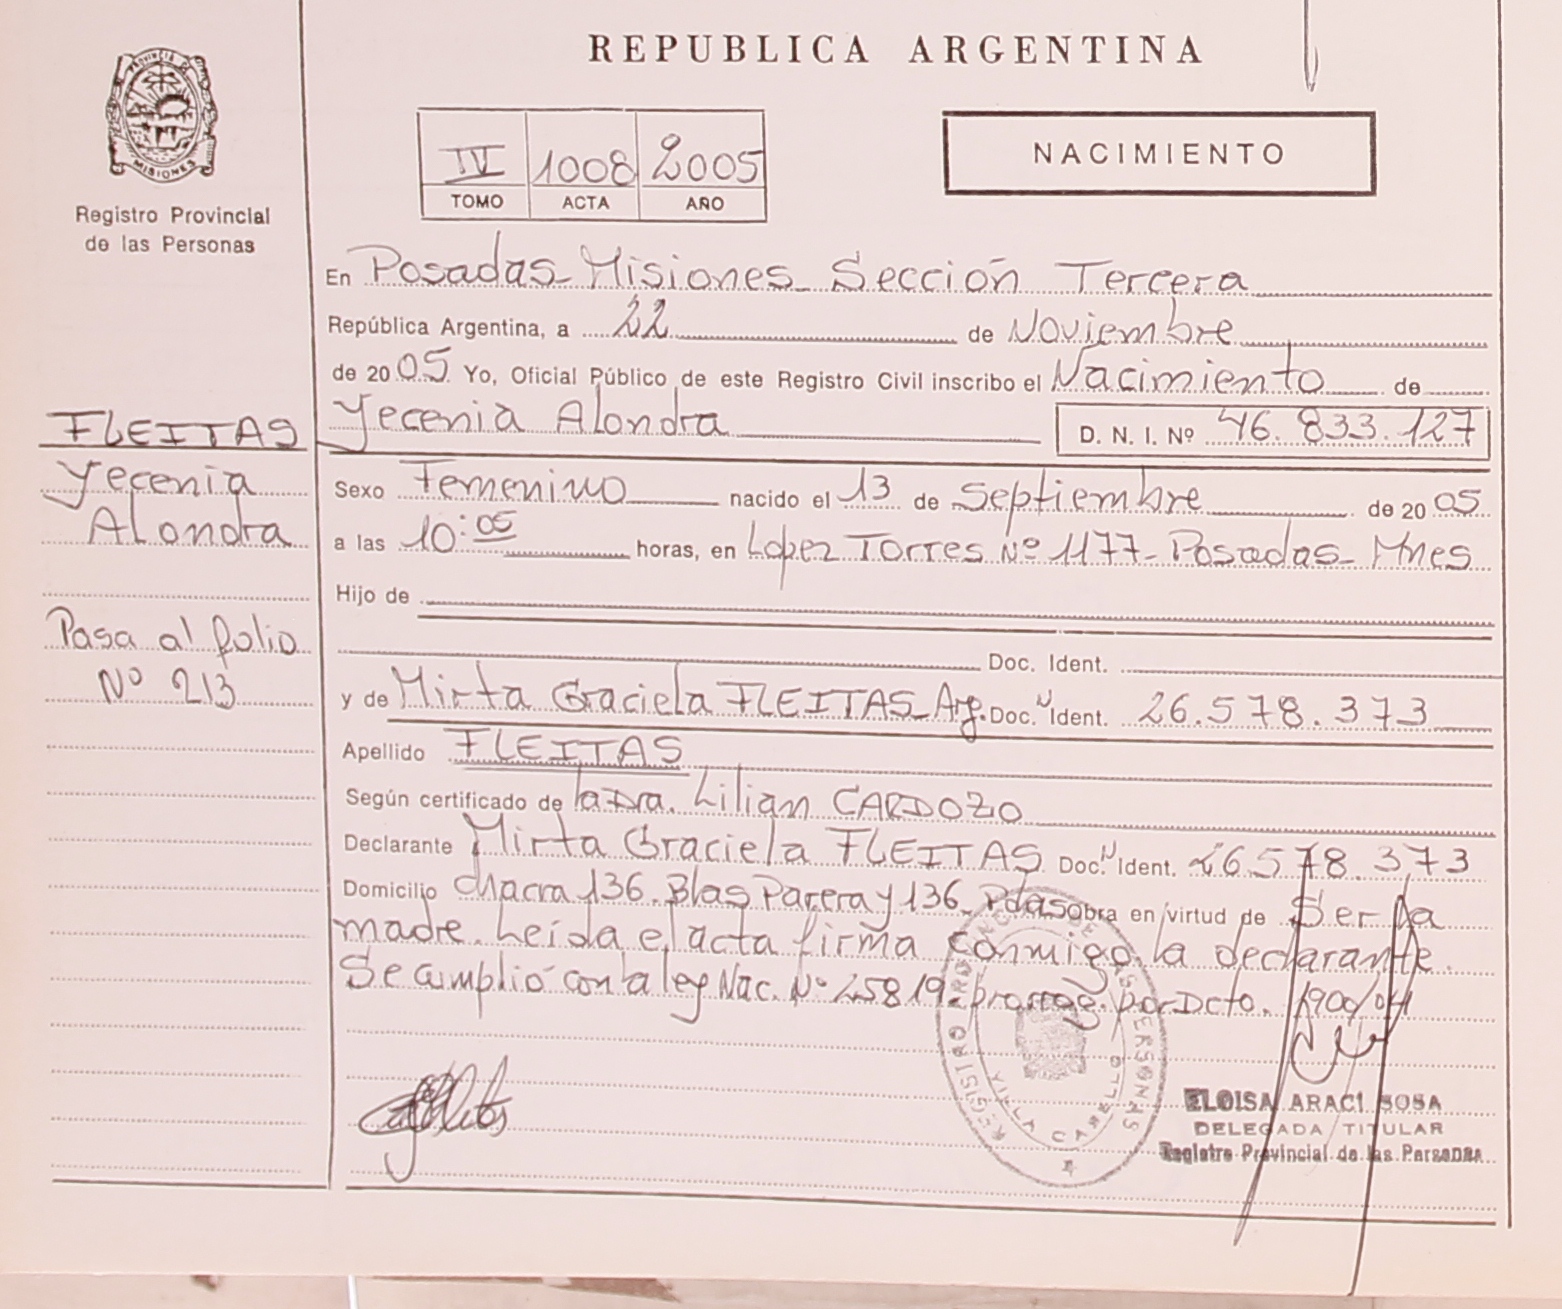 REPUBLICA ARGENTINA
PROVINCIA DE MISIONES
Registro Provincial
de las Personas
IV 1008 2005
TOMO ACTA AÑO
NACIMIENTO
En Posadas - Misiones - Sección Tercera
República Argentina, a 22 de Noviembre
de 2005 Yo, Oficial Público de este Registro Civil inscribo el Nacimiento de
Yecenia Alondra D. N. I. Nº 46.833.127
FLEITAS
Yecenia
Alondra
Pasa al folio
Nº 213
Sexo Femenino nacido el 13 de Septiembre de 2005
a las 10:05 horas, en Lopez Torres Nº 1177 - Posadas - Mnes
Hijo de
Doc. Ident.
y de Mirta Graciela FLEITAS - Arg. Doc. Ident. 26.578.373
Apellido FLEITAS
Según certificado de la Dra. Lilian CARDOZO
Declarante Mirta Graciela FLEITAS Doc. Ident. 26.578.373
Domicilio Chacra 136. Blas Parera y 136 - Pdas obra en virtud de Ser la
madre. Leída el acta firma conmigo la declarante.
Se cumplió con la ley Nac. Nº 25819 - prorrog. por Dcto. 1900/04
REGISTRO PERSONAS
VILLA CABELLO
ELOISA ARACI SOSA
DELEGADA TITULAR
Registro Provincial de las Personas